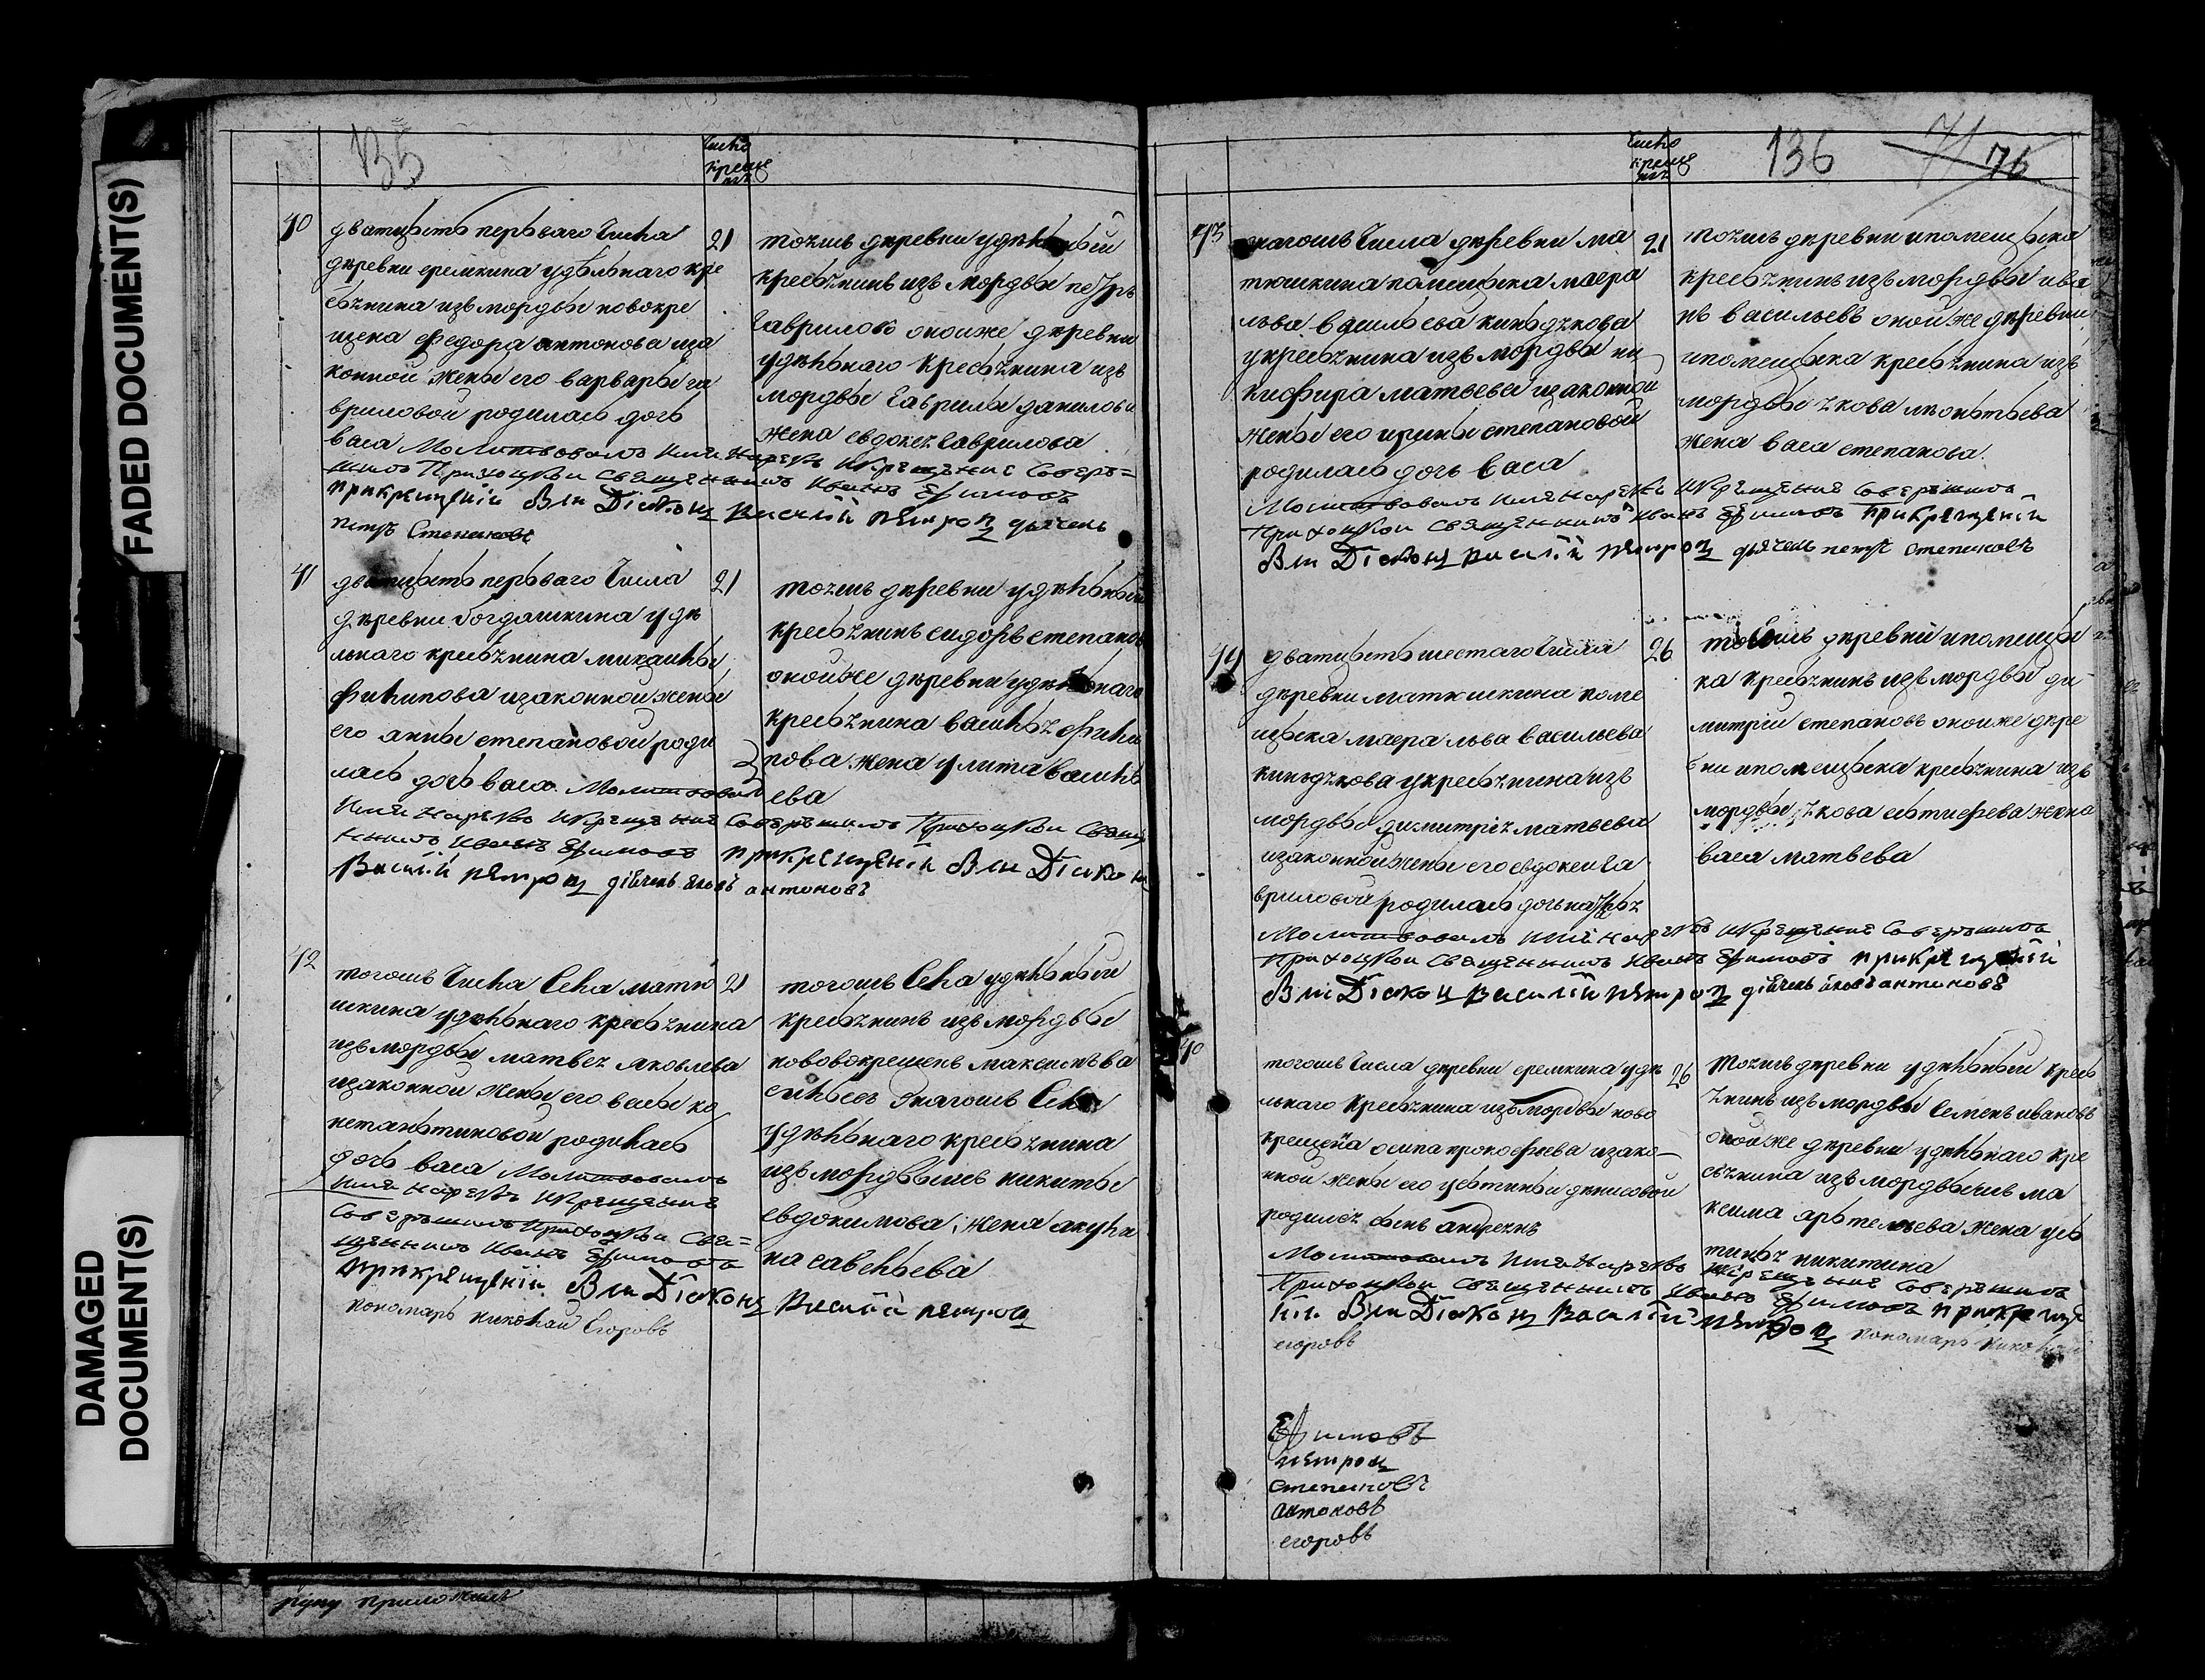 FADED DOCUMENT(S)
DAMAGED DOCUMENT(S)
135
Число креще нiя
40
дватцеть перваго числа
деревни еремкина удельнаго кре
стьянина изъ мордвы новокре
щена федора антонова иза
конной жены его варвары га
вриловой родилась дочь
васа Молитвовалъ имя нарекъ икрещение Совер=
шилъ Приходскои Священникъ Иванъ Ефимовъ
прикрещенiи былъ Дiяконъ Василiй петровъ дьячекъ
петръ Степановъ
21
тоежъ деревни удельный
крестьянинъ изъ мордвы петръ
гавриловъ оной же деревни
удельнаго крестьянина изъ
мордвы гаврилы данилова
жена евдокея гаврилова
41
дватцеть перваго числа
деревни богдашкина уде
льнаго крестьянина михаилы
филипова изаконной жены
его анны степановой роди
лась дочь васа Молитвовалъ
имя нарекъ икрещение Совершилъ Приходскои Свяще
нникъ Иванъ Ефимовъ прикрещенiи былъ Дiяконъ
Василiй петровъ дiячекъ яковъ антоновъ
21
тоежъ деревни удельный
крестьянинъ сидоръ степановъ
оной же деревни удельнаго
крестьянина василья фили
пова жена улита василь
ева
42
тогожъ числа села матю
шкина удельнаго крестьянина
изъ мордвы матвея яковлева
изаконной жены его васы ко
нстантиновой родилась
дочь васа Молитвовалъ
имя нарекъ икрещение
Совершилъ Приходскои Свя=
щенникъ Иванъ Ефимовъ
прикрещенiи былъ Дiяконъ Василiй петровъ
пономарь николай Егоровъ
21
тогожъ села удельный
крестьянинъ изъ мордвы
нововокрещенъ максимъ ва
сильевъ тогожъ села
удельнаго крестьянина
изъ мордвы никиты
евдокимова жена акули
на савельева
136
71
76
Число креще нiя
43
тогожъ числа деревни ма
тюшкина помещика маера
льва васильева киндякова
укрестьянина изъ мордвы ни
кифира матвеева изаконной
жены его ирины степановой
родилась дочь васа
Молитвовалъ имя нарекъ икрещение Совершилъ
Приходскои Священникъ Иванъ Ефимовъ прикрещенiи
былъ Дiяконъ василiй петровъ дьячекъ петръ степановъ
21
тоежъ деревни и помещика
крестьянинъ изъ мордвы ива
нъ васильевъ оной же деревни
ипомещика крестьянина изъ
мордвы якова леонтьева
жена васа степанова
44
дватцеть шестаго числа
деревни матюшкина поме
щика маера льва васильева
киндякова укрестьянина изъ
мордвы димитрея матвеева
изаконной жены его евдокеи га
вриловой родилась дочь наталья
Молитвовалъ имя нарекъ икрещение Совершилъ
Приходскои Священникъ Иванъ Ефимовъ прикрещенiи
былъ Дiяконъ Василiй петровъ дiячекъ яковъ антоновъ
26
тоежъ деревни ипомещи
ка крестьянинъ изъ мордвы ди
митрiй степановъ оной же дере
вни ипомещика крестьянина изъ
мордвы якова жена
васа матвеева
тогожъ числа деревни еремкина уде
льнаго крестьянина изъ мордвы ново
крещена осипа прокофьева изако
нной жены его устиньи денисовой
родился сынъ андреянъ
Молитвовалъ имя нарекъ икрещение Совершилъ
Приходскои Священникъ Иванъ Ефимовъ прикреще
нiи былъ Дiяконъ Василiй петровъ пономарь николай
егоровъ
26
тоежъ деревни удельный кресть
янинъ изъ мордвы семенъ ивановъ
оной же деревни удельнаго кре
стьянина изъ мордвы ма
ксима артемьева жена усь
тинья никитина
Ефимовъ
петровъ
степановъ
антоновъ
егоровъ
руку приложилъ